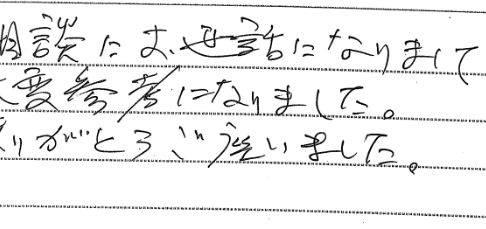 相談にお世話になりまして
大変参考になりました。
ありがとうご座いました。